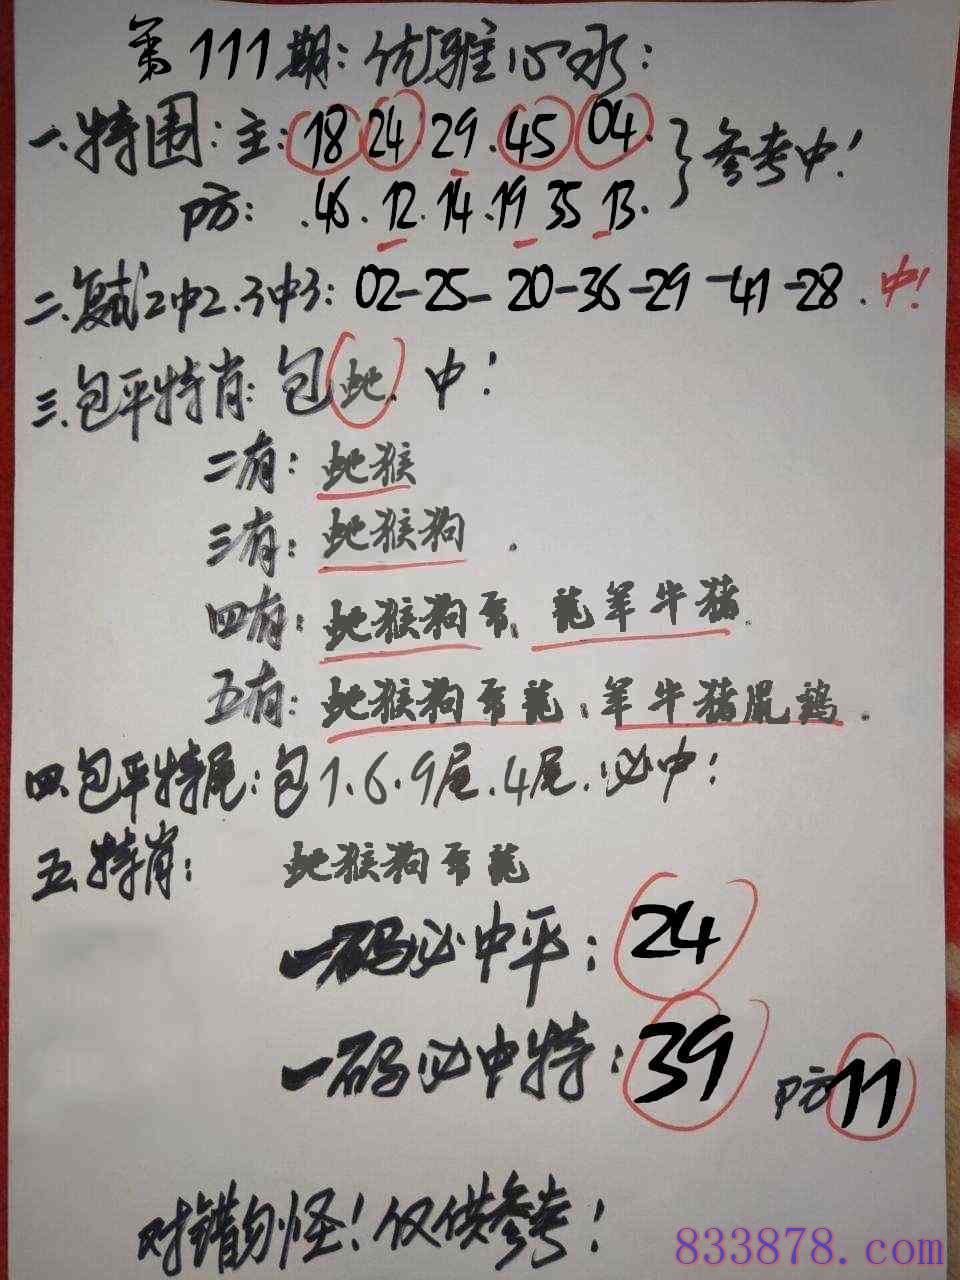 第111期:优雅心水:
一.特围:主:18 24.29.45 04.
防:.46.12.14.19 35 13.
参考中!
二.复式2中2.3中3:02-25-20-36-29-41-28.中!
三.包平特肖:包蛇.中!
二有:蛇猴
三有:蛇猴狗.
四有:蛇猴狗.龍羊牛猪.
五有:蛇猴狗龍.羊牛猪鼠鷄.
四.包平特尾:包1.6.9尾.4尾.必中!
五.特肖:蛇猴狗龍
一码必中平:24
一码必中特:39 防11
对错勿怪!仅供参考!
833878.com